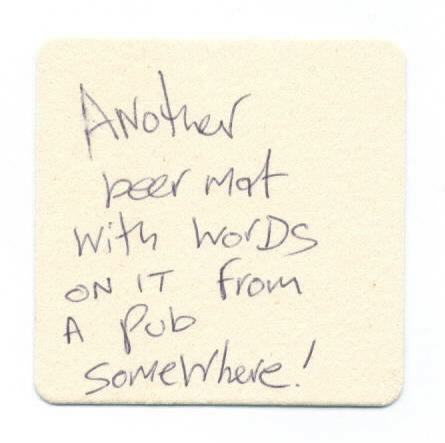 Another
beer mat
with worDs
ON IT from
A Pub
somewhere!